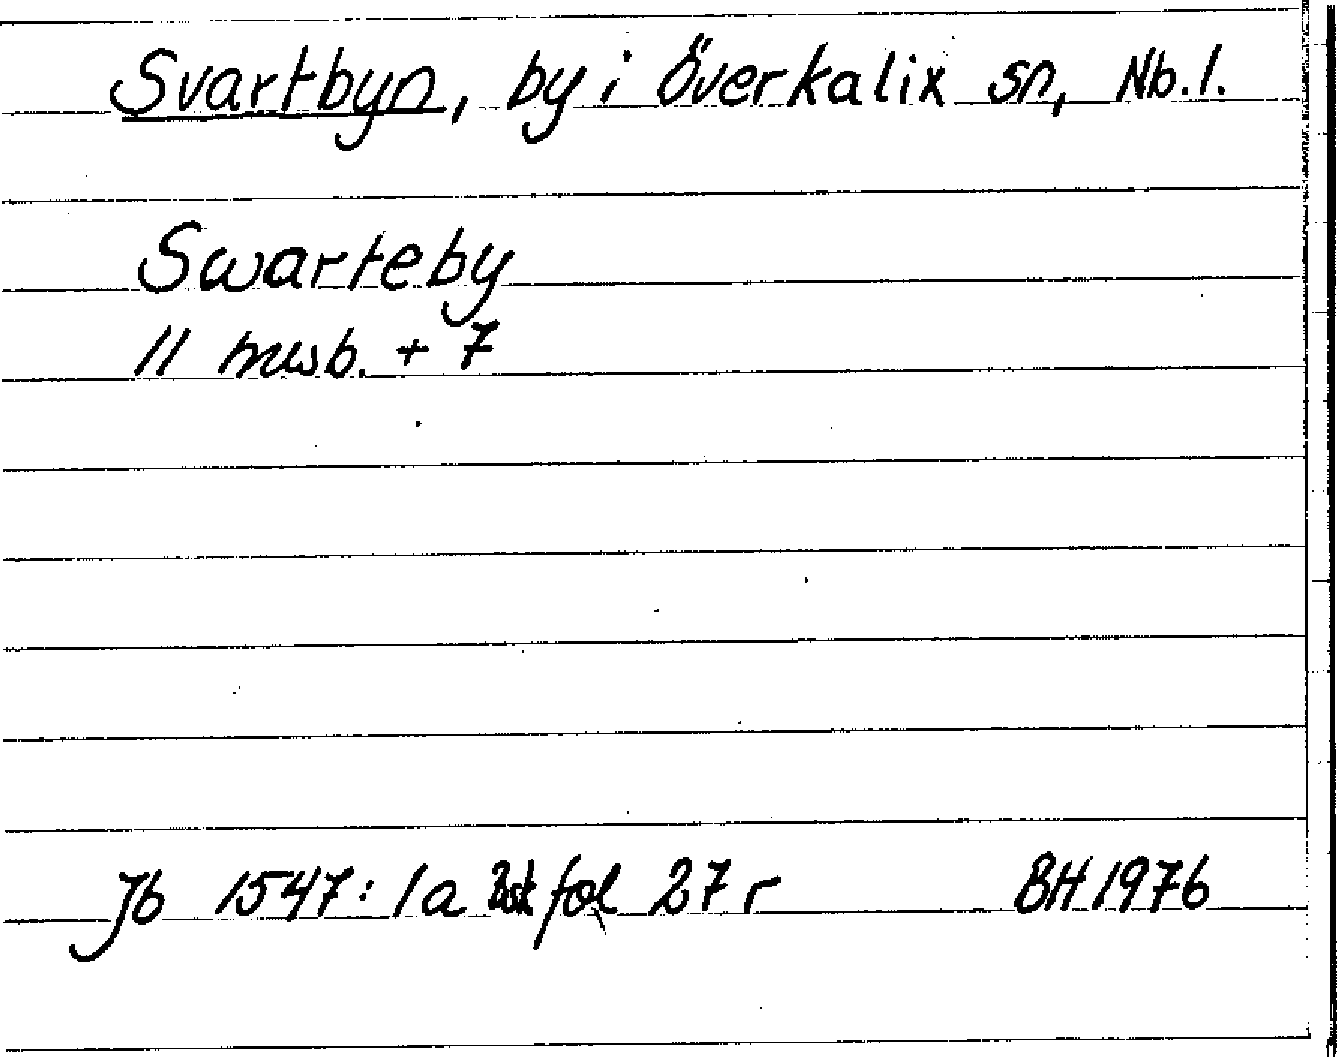 Svartbyn, by i Överkalix sn, Nb. l.
Swarteby
11 husb. + 7
Jb 1547: 1a fol 27 r BH 1976